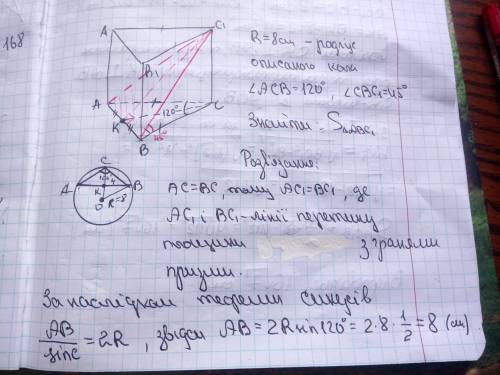 168
A
C₁
B₁
A
120°
C
K
B
45°
R=8см – радіус
описаного кола
∠ACB=120°, ∠CBC₁=45°
Знайти: S△ABC₁
Розв'язання:
C
120°
A
K
4
B
O
R=8
AC=BC, тому AC₁=BC₁, де
AC₁ і BC₁ – лінії перетину
площини з гранями
призми.
За наслідком теореми синусів
AB/sinC = 2R, звідси AB = 2Rsin120° = 2·8·1/2 = 8 (см)